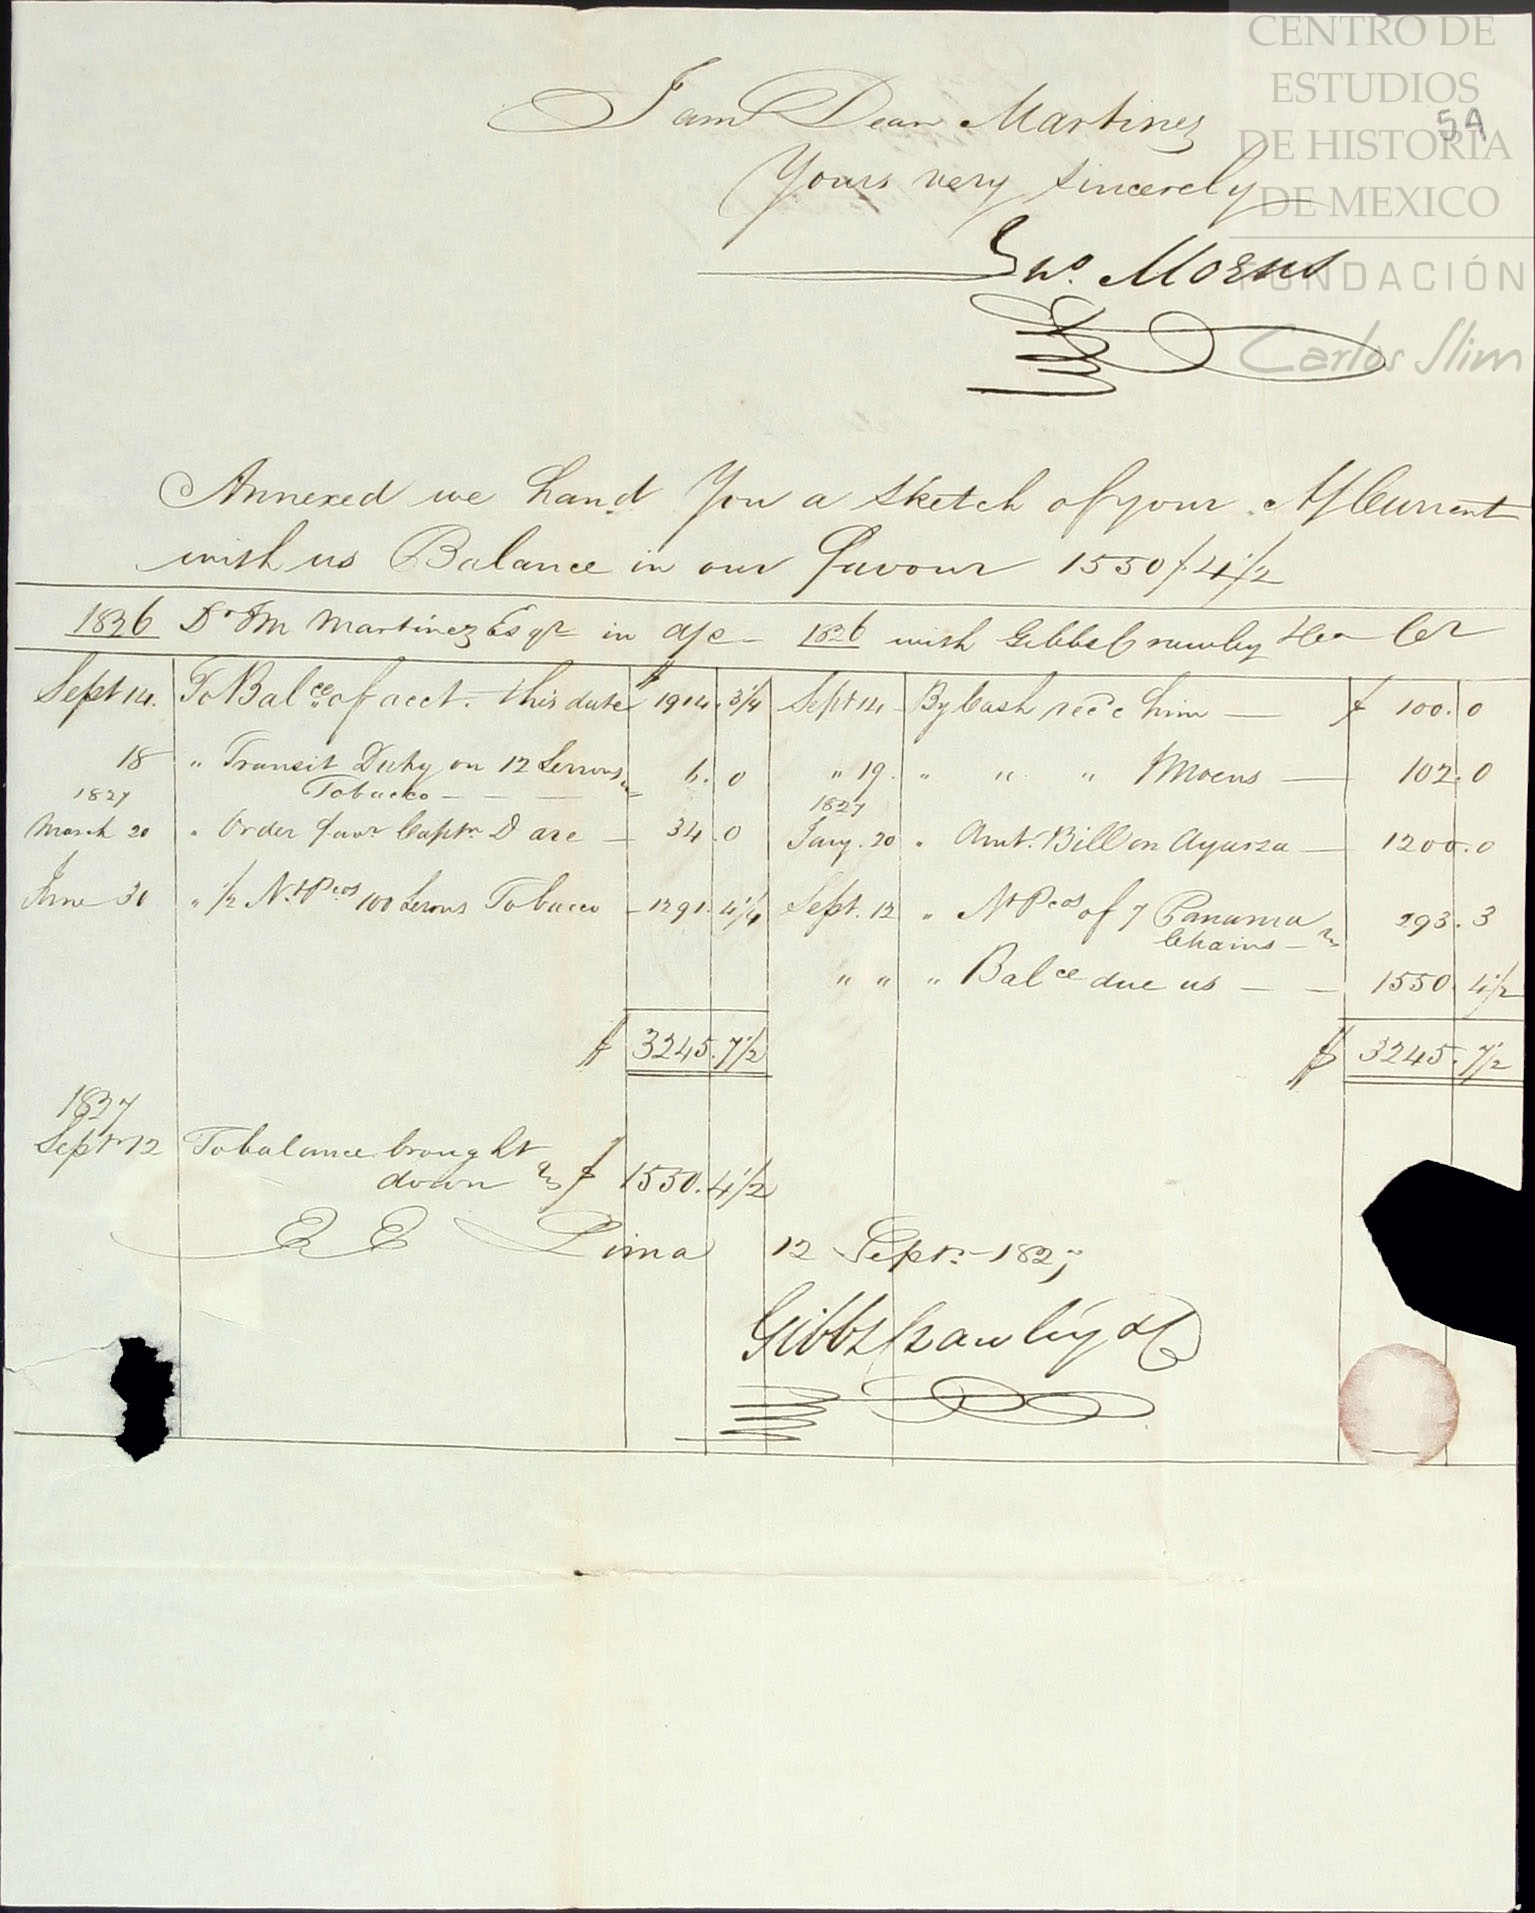 CENTRO DE
ESTUDIOS
DE HISTORIA
DE MEXICO
FUNDACIÓN
Carlos Slim
59
I am Dear Martinez
Yours very sincerely
Jno. Moens
Annexed we hand You a sketch of your A/Current
with us Balance in our favour 1550 /. 4 1/2
1826 Dr. M Martinez Esqr in a/c - 1826 with Gibbs Crawley & Co Cr
Sept 14. To Balce of acct. this date $ 1914. 3 1/4 Sept 14 By Cash recd him — $ 100. 0
18 " Transit Duty on 12 Serrons Tobacco - - - 6. 0 " 19. " " " Moens — 102. 0
1827 1827
March 20 " Order favr Captn Dare - 34. 0 Jany. 20 " Amt. Bill on Ayarza — 1200. 0
June 30 " 1/2 Nt Pcos 100 Serons Tobacco - 1291. 4 1/4 Sept. 12 " Nt Pcos of 7 Panama Chains - 293. 3
" " " Balce due us — — 1550. 4 1/2
$ 3245. 7 1/2 $ 3245. 7 1/2
1827
Septr 12 To balance brought down $ 1550. 4 1/2
E E Lima 12 Septr. 1827
Gibbs Crawley & Co